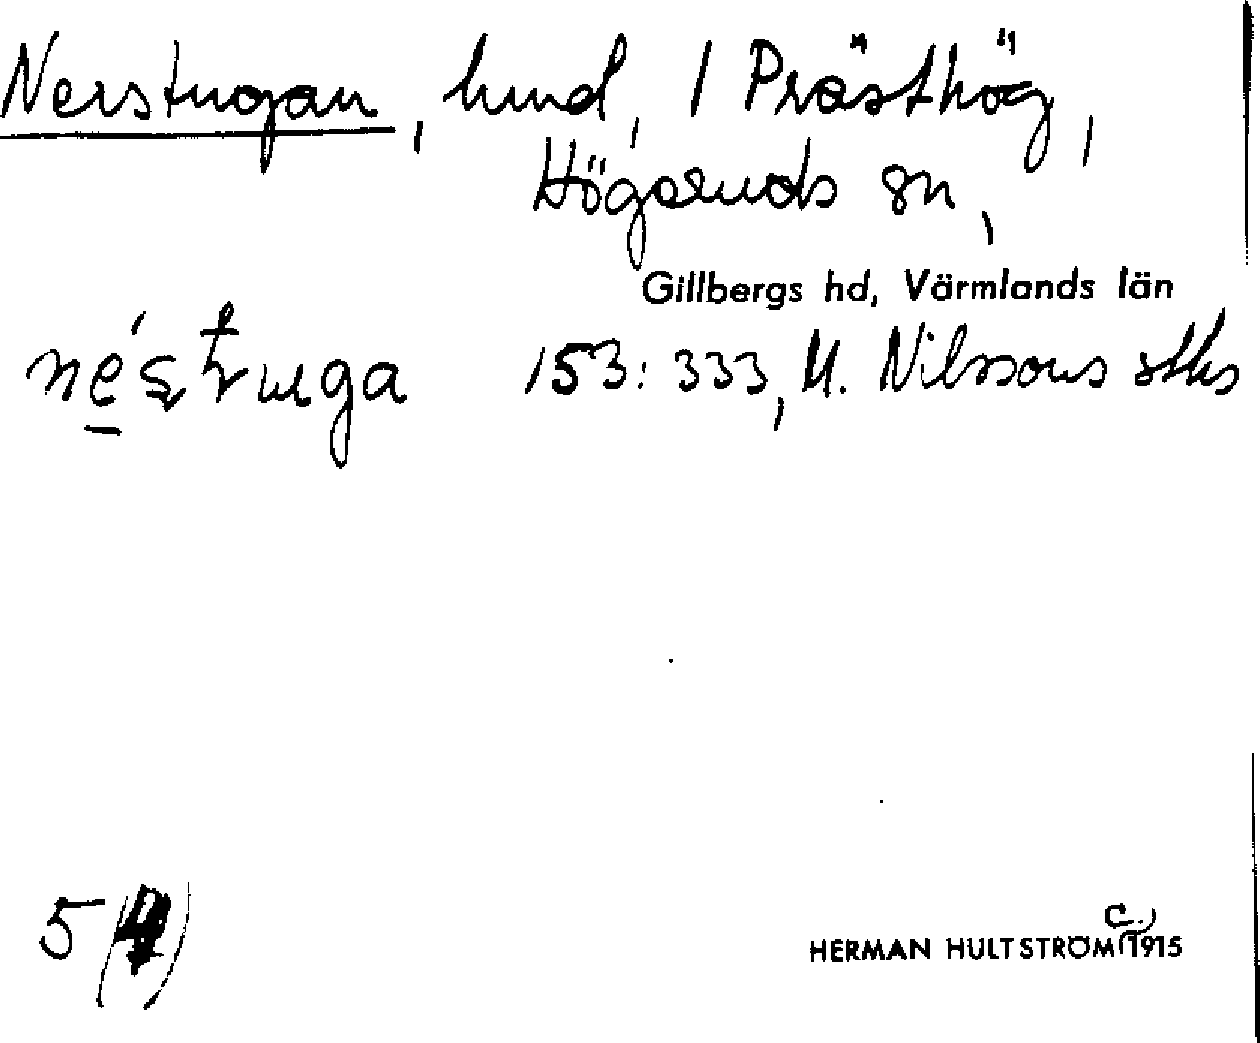 Nerstugan, hmd, 1 Prästhög,
Högeruds sn,
Gillbergs hd, Värmlands län
néstuga 153:333, U. Nilssons sths
5(4)
HERMAN HULTSTRÖM (c.) 1915